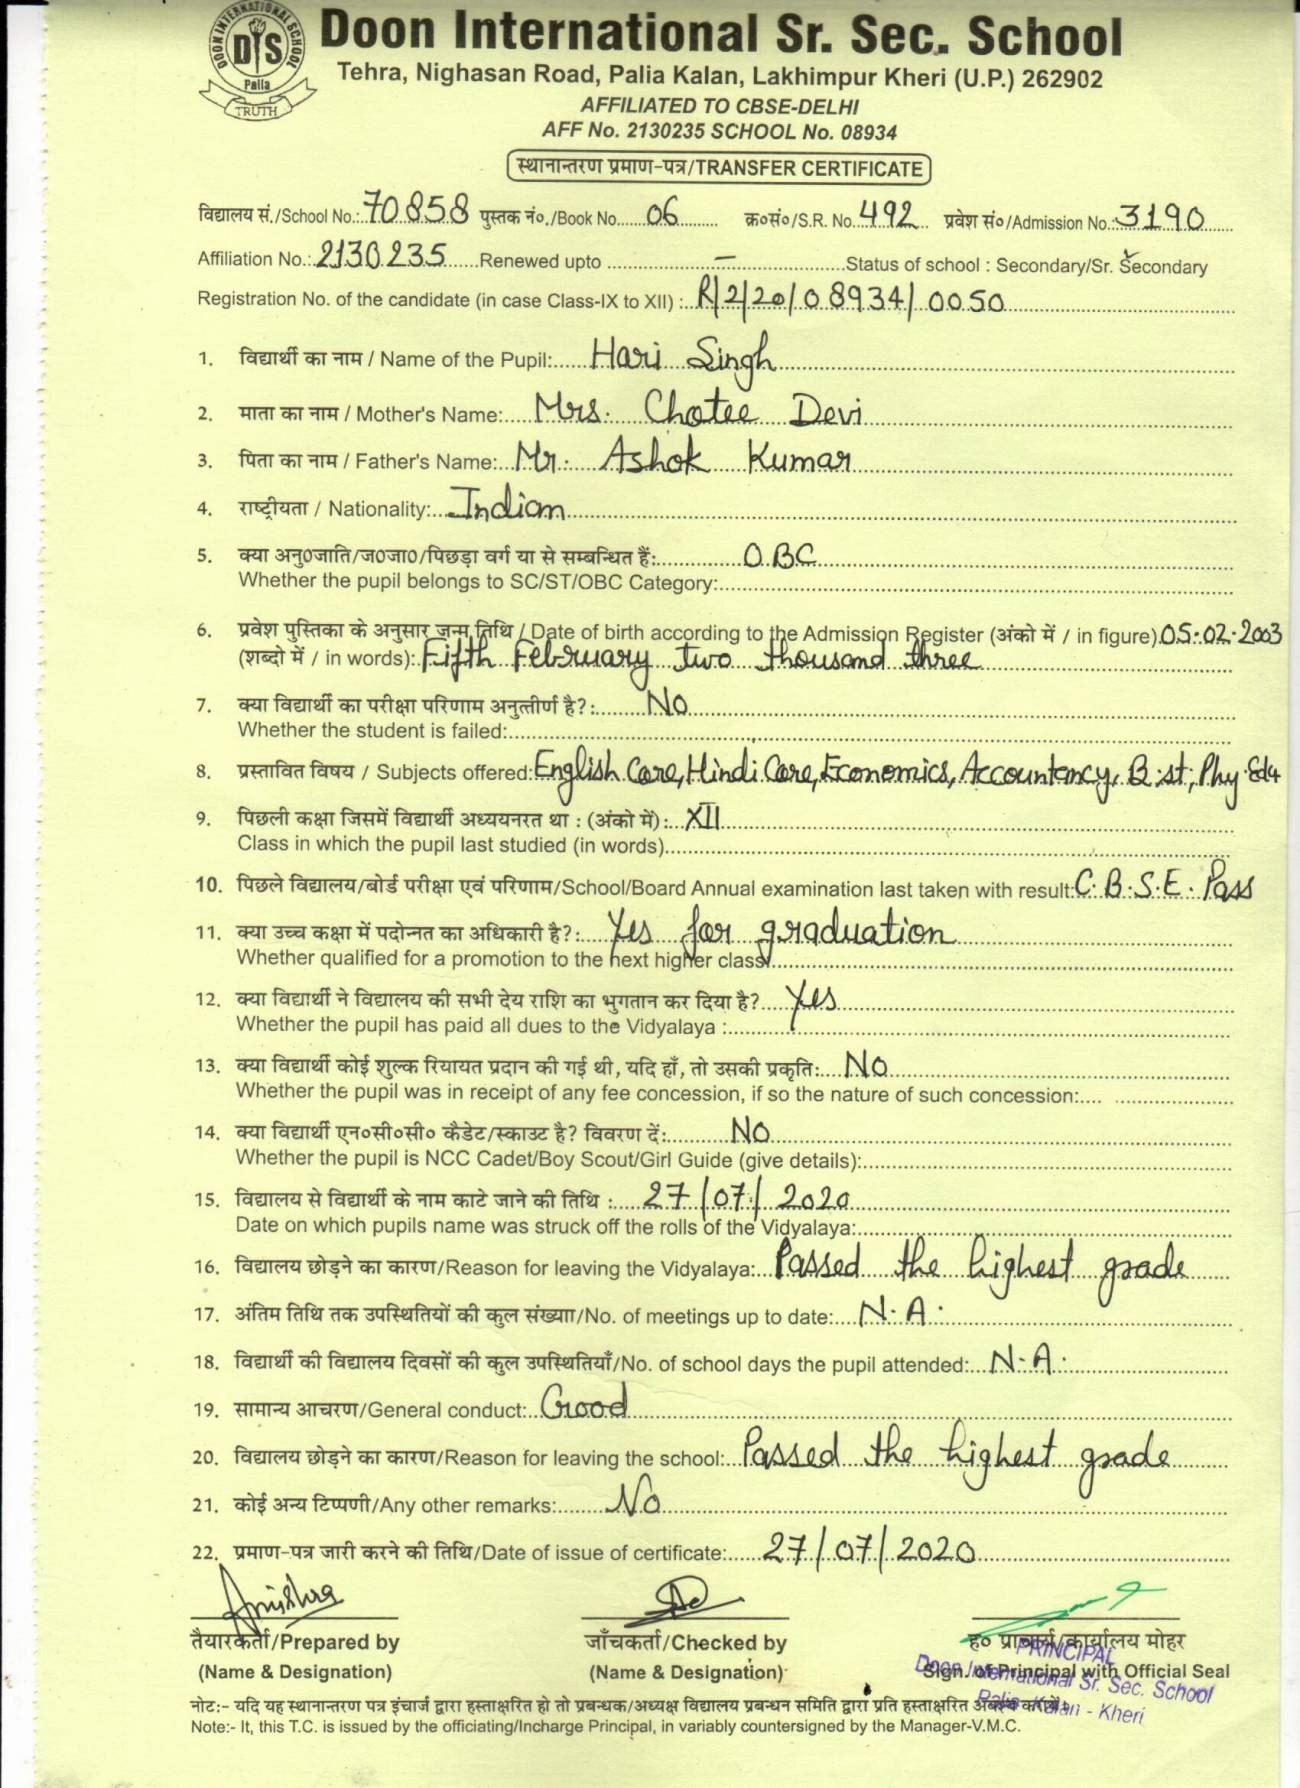 DOON INTERNATIONAL SCHOOL
DIS
Palia
TRUTH
Doon International Sr. Sec. School
Tehra, Nighasan Road, Palia Kalan, Lakhimpur Kheri (U.P.) 262902
AFFILIATED TO CBSE-DELHI
AFF No. 2130235 SCHOOL No. 08934
स्थानान्तरण प्रमाण-पत्र/TRANSFER CERTIFICATE
विद्यालय सं./School No.: 70858 पुस्तक नं०./Book No. 06 क्र०सं०/S.R. No. 492 प्रवेश सं०/Admission No.: 3190
Affiliation No.: 2130235 Renewed upto - Status of school : Secondary/Sr. Secondary
Registration No. of the candidate (in case Class-IX to XII) : R/2/20/08934/0050
1. विद्यार्थी का नाम / Name of the Pupil: Hari Singh
2. माता का नाम / Mother's Name: Mrs. Chotee Devi
3. पिता का नाम / Father's Name: Mr. Ashok Kumar
4. राष्ट्रीयता / Nationality: Indian
5. क्या अनु0जाति/ज0जा0/पिछड़ा वर्ग या से सम्बन्धित हैं: OBC
Whether the pupil belongs to SC/ST/OBC Category:
6. प्रवेश पुस्तिका के अनुसार जन्म तिथि / Date of birth according to the Admission Register (अंको में / in figure) 05.02.2003
(शब्दो में / in words): Fifth February two thousand three
7. क्या विद्यार्थी का परीक्षा परिणाम अनुत्तीर्ण है?: No
Whether the student is failed:
8. प्रस्तावित विषय / Subjects offered: English Core, Hindi Core, Economics, Accountancy, B.st, Phy Edu
9. पिछली कक्षा जिसमें विद्यार्थी अध्ययनरत था : (अंको में): XII
Class in which the pupil last studied (in words)
10. पिछले विद्यालय/बोर्ड परीक्षा एवं परिणाम/School/Board Annual examination last taken with result: C.B.S.E. Pass
11. क्या उच्च कक्षा में पदोन्नत का अधिकारी है?: Yes for graduation
Whether qualified for a promotion to the next higher class
12. क्या विद्यार्थी ने विद्यालय की सभी देय राशि का भुगतान कर दिया है? Yes
Whether the pupil has paid all dues to the Vidyalaya :
13. क्या विद्यार्थी कोई शुल्क रियायत प्रदान की गई थी, यदि हाँ, तो उसकी प्रकृति: No
Whether the pupil was in receipt of any fee concession, if so the nature of such concession:
14. क्या विद्यार्थी एन०सी०सी० कैडेट/स्काउट है? विवरण दें: No
Whether the pupil is NCC Cadet/Boy Scout/Girl Guide (give details):
15. विद्यालय से विद्यार्थी के नाम काटे जाने की तिथि : 27/07/2020
Date on which pupils name was struck off the rolls of the Vidyalaya:
16. विद्यालय छोड़ने का कारण/Reason for leaving the Vidyalaya: Passed the highest grade
17. अंतिम तिथि तक उपस्थितियों की कुल संख्या/No. of meetings up to date: N.A.
18. विद्यार्थी की विद्यालय दिवसों की कुल उपस्थितियाँ/No. of school days the pupil attended: N.A.
19. सामान्य आचरण/General conduct: Good
20. विद्यालय छोड़ने का कारण/Reason for leaving the school: Passed the highest grade
21. कोई अन्य टिप्पणी/Any other remarks: No
22. प्रमाण-पत्र जारी करने की तिथि/Date of issue of certificate: 27/07/2020
तैयारकर्ता/Prepared by जाँचकर्ता/Checked by ह० प्राचार्य/कार्यालय मोहर
(Name & Designation) (Name & Designation) Sign. of Principal with Official Seal
PRINCIPAL
Doon International Sr. Sec. School
Palia Kalan - Kheri
नोट:- यदि यह स्थानान्तरण पत्र इंचार्ज द्वारा हस्ताक्षरित हो तो प्रबन्धक/अध्यक्ष विद्यालय प्रबन्धन समिति द्वारा प्रति हस्ताक्षरित अवश्य
Note:- It, this T.C. is issued by the officiating/Incharge Principal, in variably countersigned by the Manager-V.M.C.